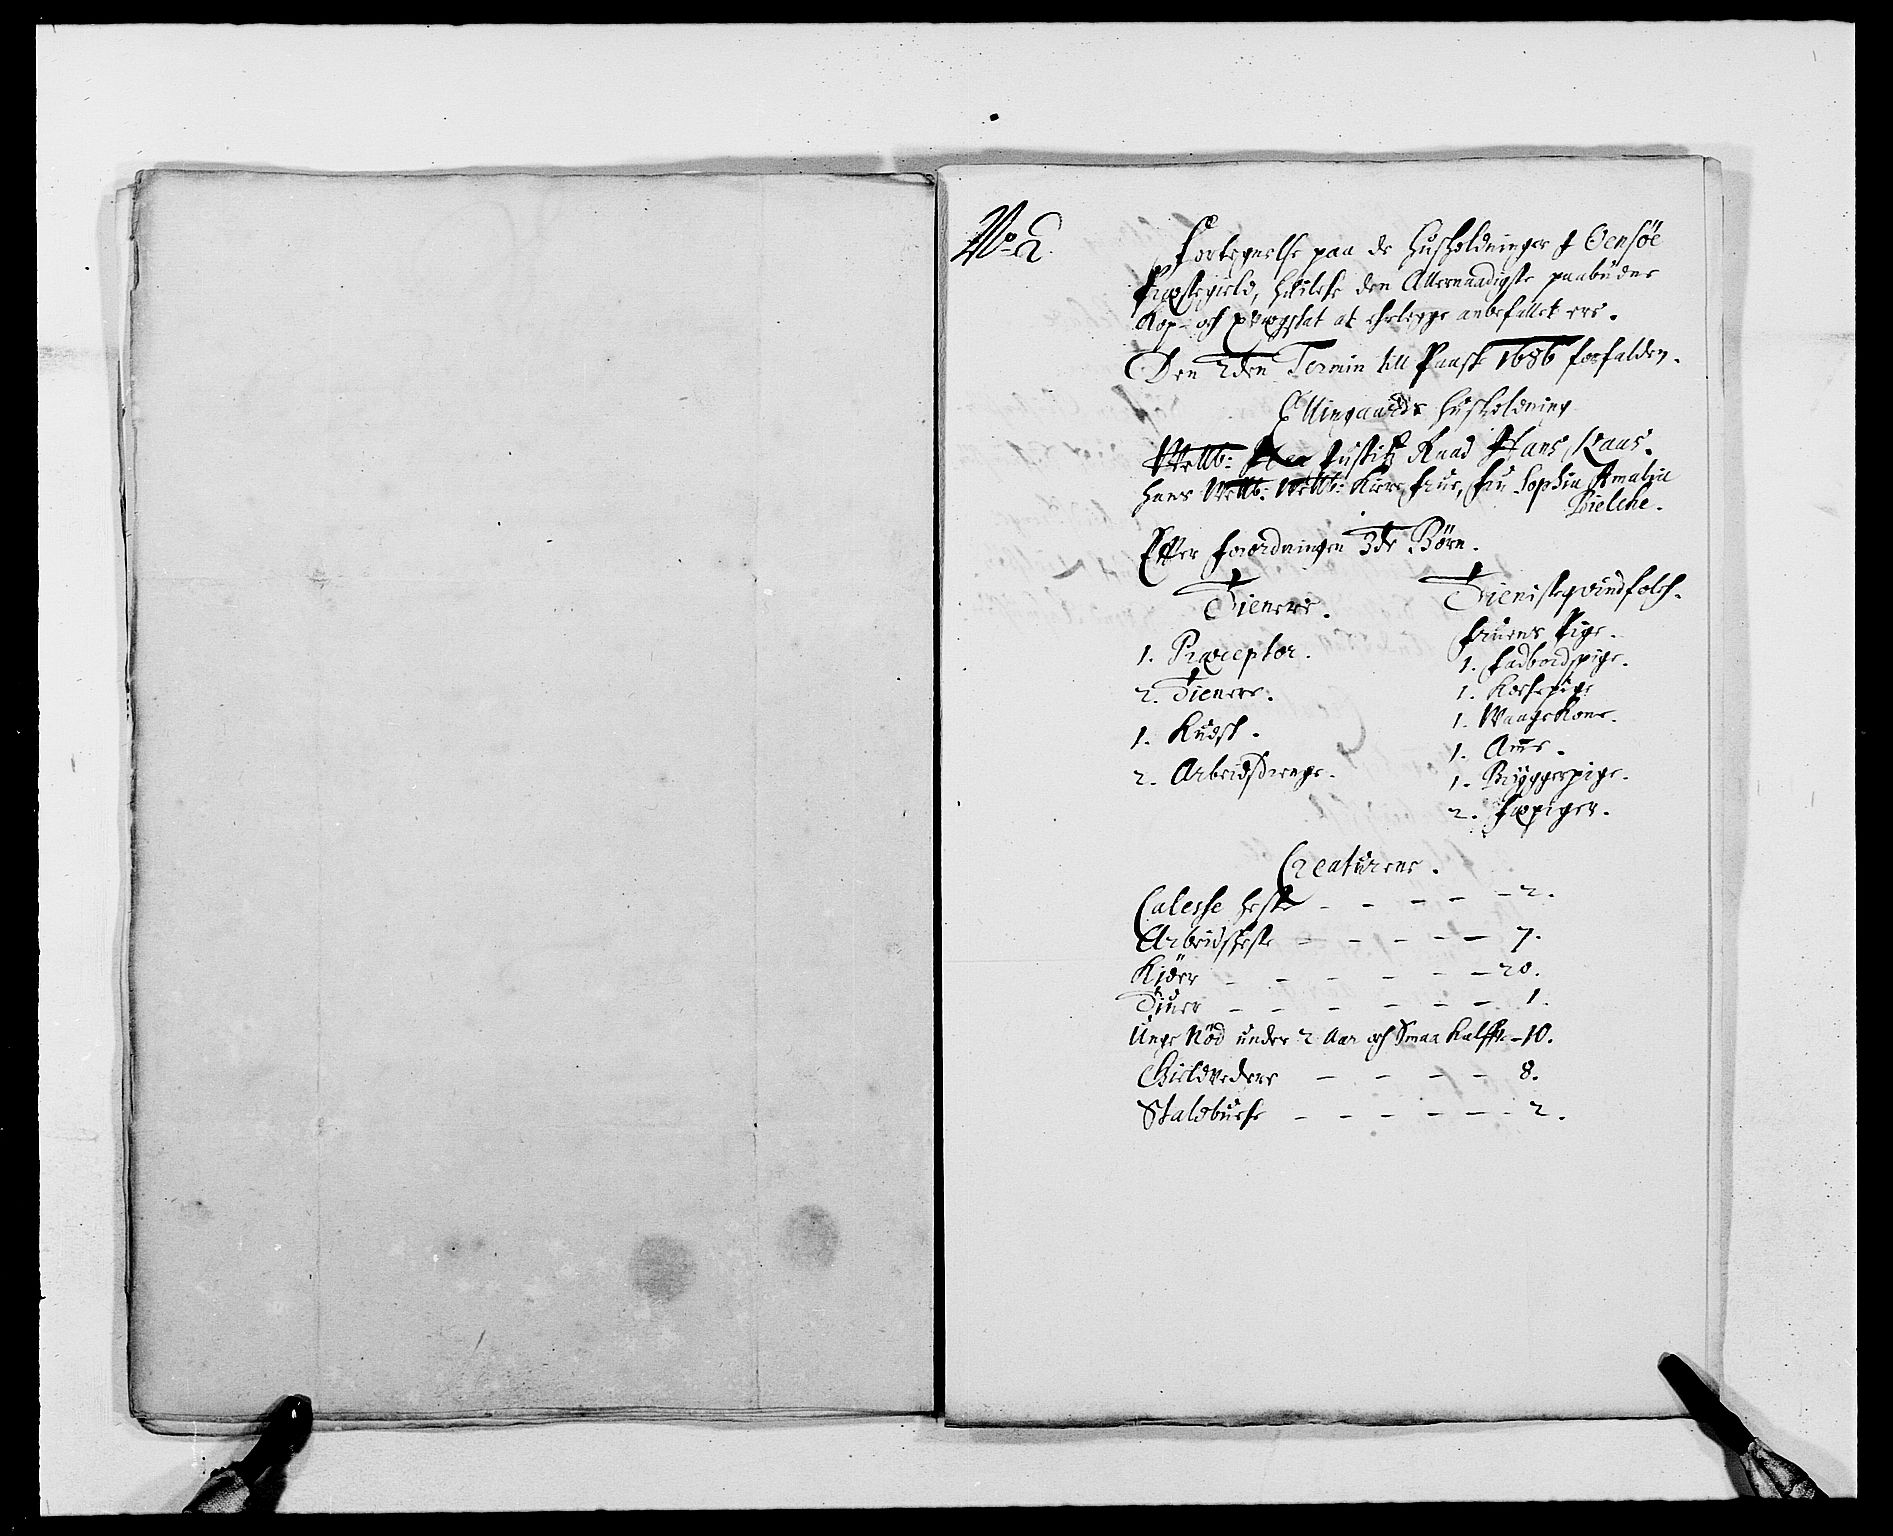 No 2.
Fortegnelse paa de Husholdninger J Oensøe
Præstegield, huilche den Allernaadigste paabudne
Kop- och qvægskat at erlegge anbefallet ere.
Den 2den Termin till Paaske 1686 forfalden.
Ellingaards Husholdning
Wellb: Her Justitz Raad Hans Kaas.
Hans Wellb: Wellb: Kiere frue, fru Sophia Amalia
Bielche.
Efter forordningen 3de Børn.
Tienere.
1. Præceptor.
2. Tienere.
1. Kudsk.
2. Arbeidsdrenge.
Tienisteqvindfolch.
fruens Pige.
1. fadbordspige.
1. Kochepige
1. Waagekone.
1. Ame.
1. Bryggerpige.
2. fæpiger.
Creaturene.
Calesse heste - - - - - 2.
Arbeidsheste - - - - - 7.
Kiøer - - - - - - 20.
Tiuer - - - - - - 1.
Unge Nød under 2 Aar och Smaa Kalffve - 10.
Gieldvedere - - - - 8.
Staldbucke - - - - - - 2.